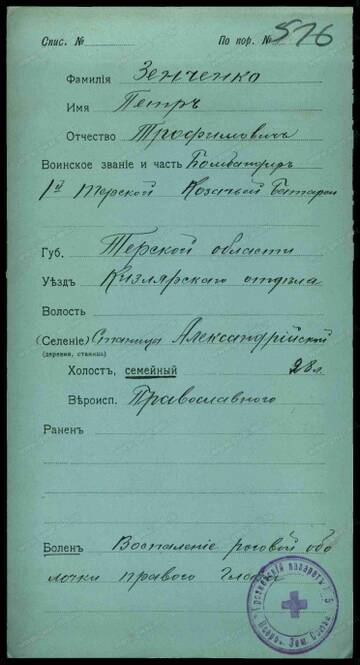 Спис. № По пор. № 576
Фамилія Зенченко
Имя Петръ
Отчество Трофимовичъ
Воинское званіе и часть Бомбардиръ
1й Терской Козачьей Батареи
Губ. Терской области
Уѣздъ Кизлярскаго отдѣла
Волость
(Селеніе) Станица Александрійской
(деревня, станица)
Холостъ, семейный 28 л
Вѣроисп. Православнаго
Раненъ
Боленъ Воспаленіе роговой обо
лочки праваго глаза